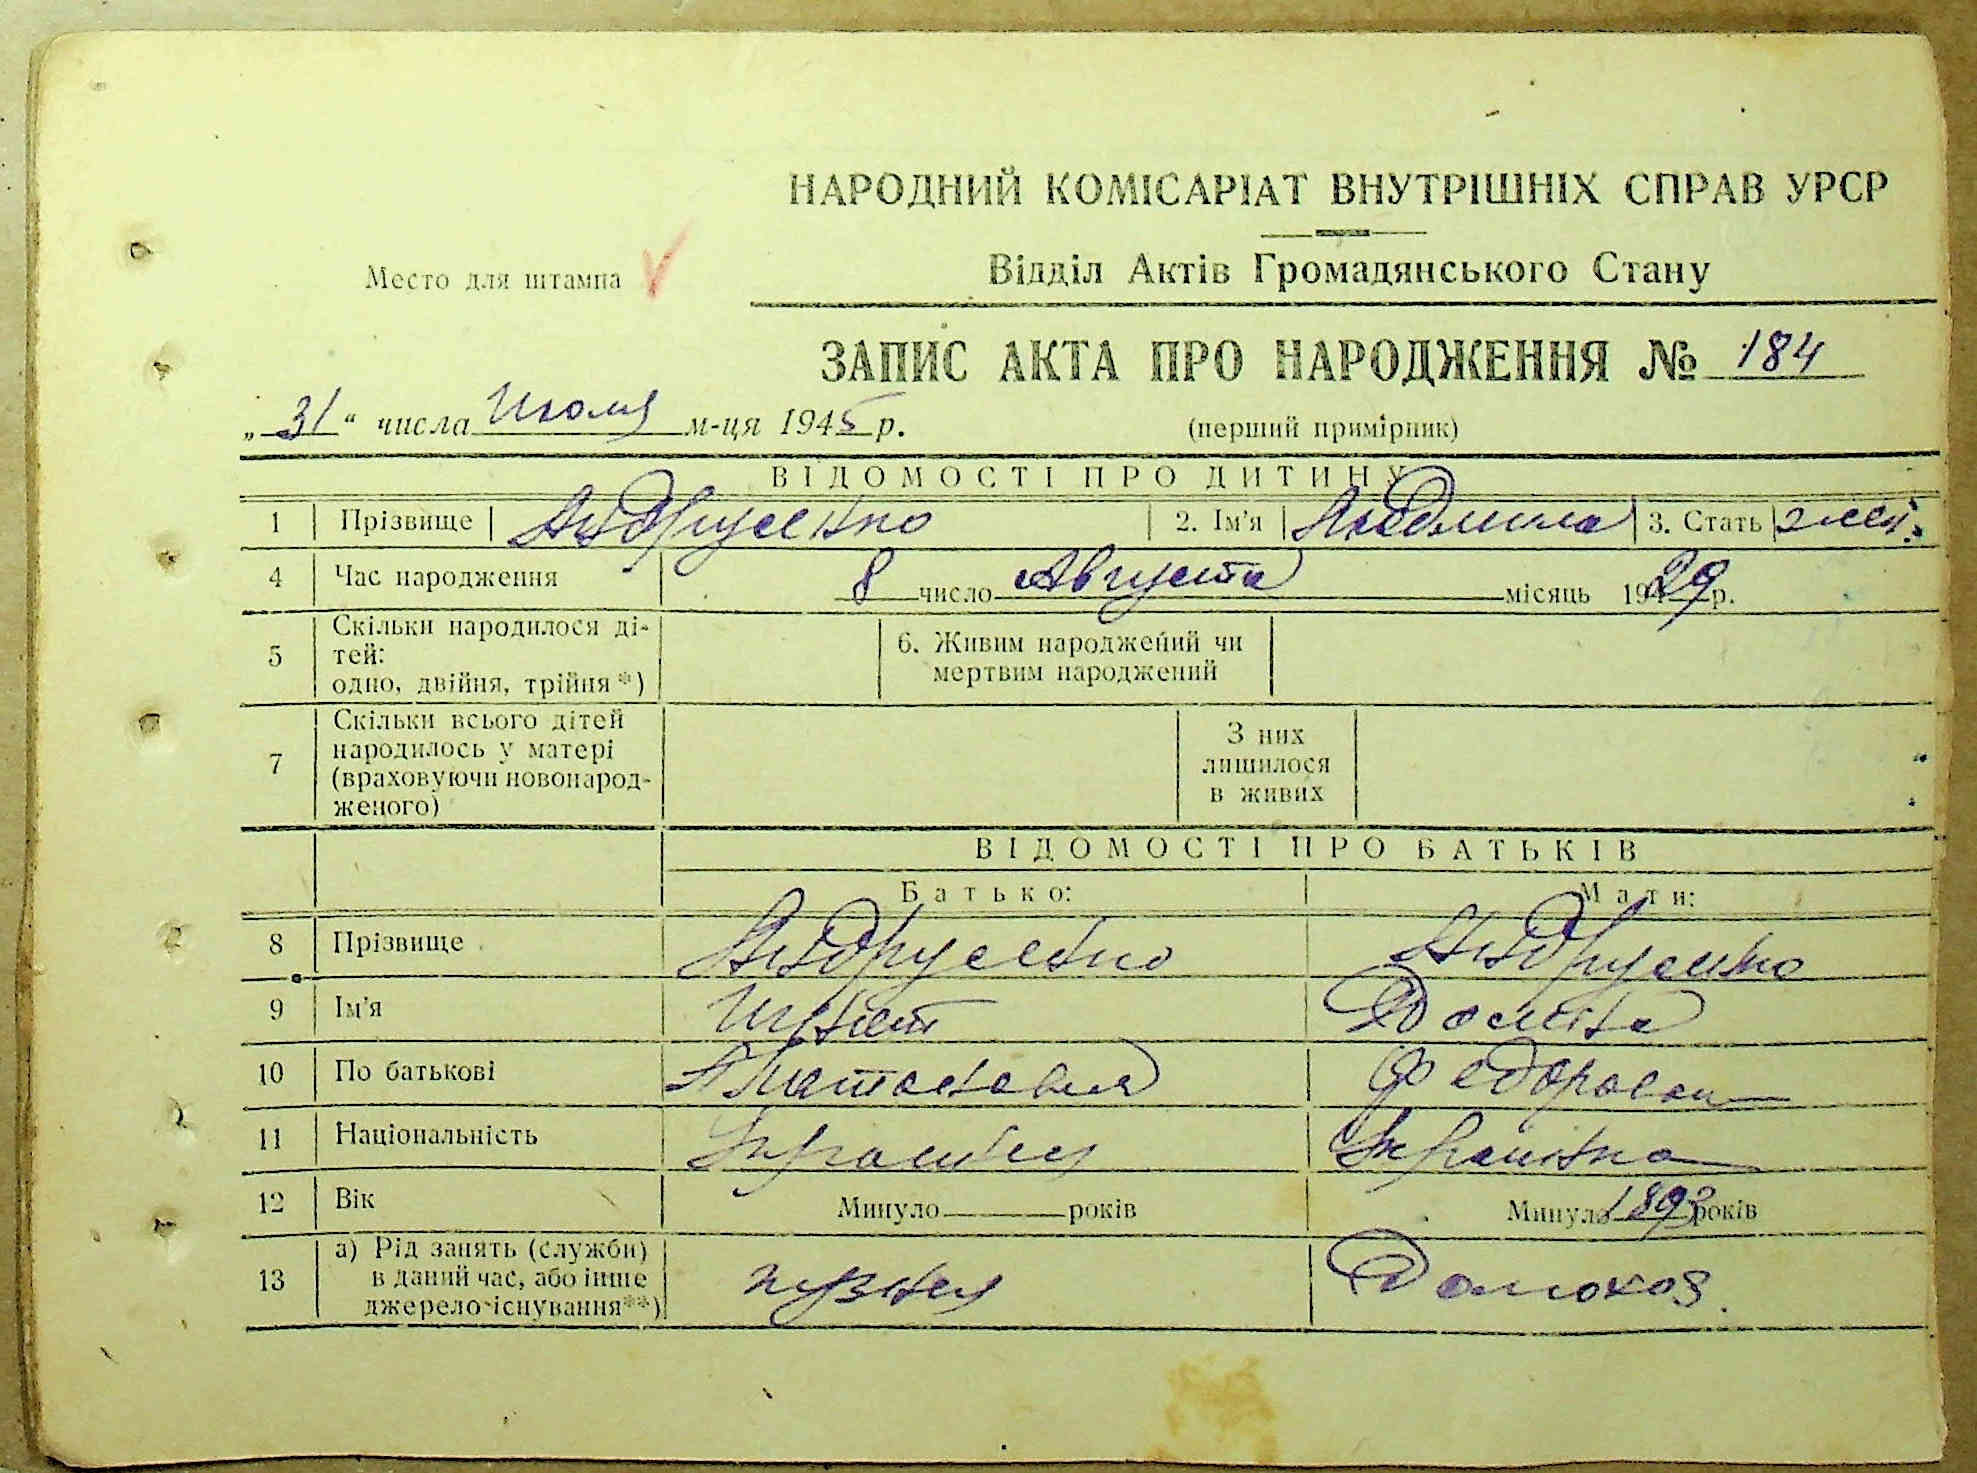 НАРОДНИЙ КОМІСАРІАТ ВНУТРІШНІХ СПРАВ УРСР
Место для штампа
Відділ Актів Громадянського Стану
ЗАПИС АКТА ПРО НАРОДЖЕННЯ № 184
„31“ числа Июля м-ця 1945 р.
(перший примірник)
ВІДОМОСТІ ПРО ДИТИНУ
1 Прізвище Андрусенко 2. Ім'я Людмила 3. Стать жен.
4 Час народження 8 число Августа місяць 1929 р.
5 Скільки народилося ді-
тей:
одно, двійня, трійня*)
6. Живим народжений чи
мертвим народжений
7 Скільки всього дітей
народилось у матері
(враховуючи новонарод-
женого)
З них
лишилося
в живих
ВІДОМОСТІ ПРО БАТЬКІВ
Батько: Мати:
8 Прізвище Андрусенко Андрусенко
9 Ім'я Игнат Домна
10 По батькові Федоровна
11 Національність Украинец Украинка
12 Вік Минуло років Минуло 1893 років
13 а) Рід занять (служби)
в даний час, або інше
джерело існування**)
кузнец Домохоз.